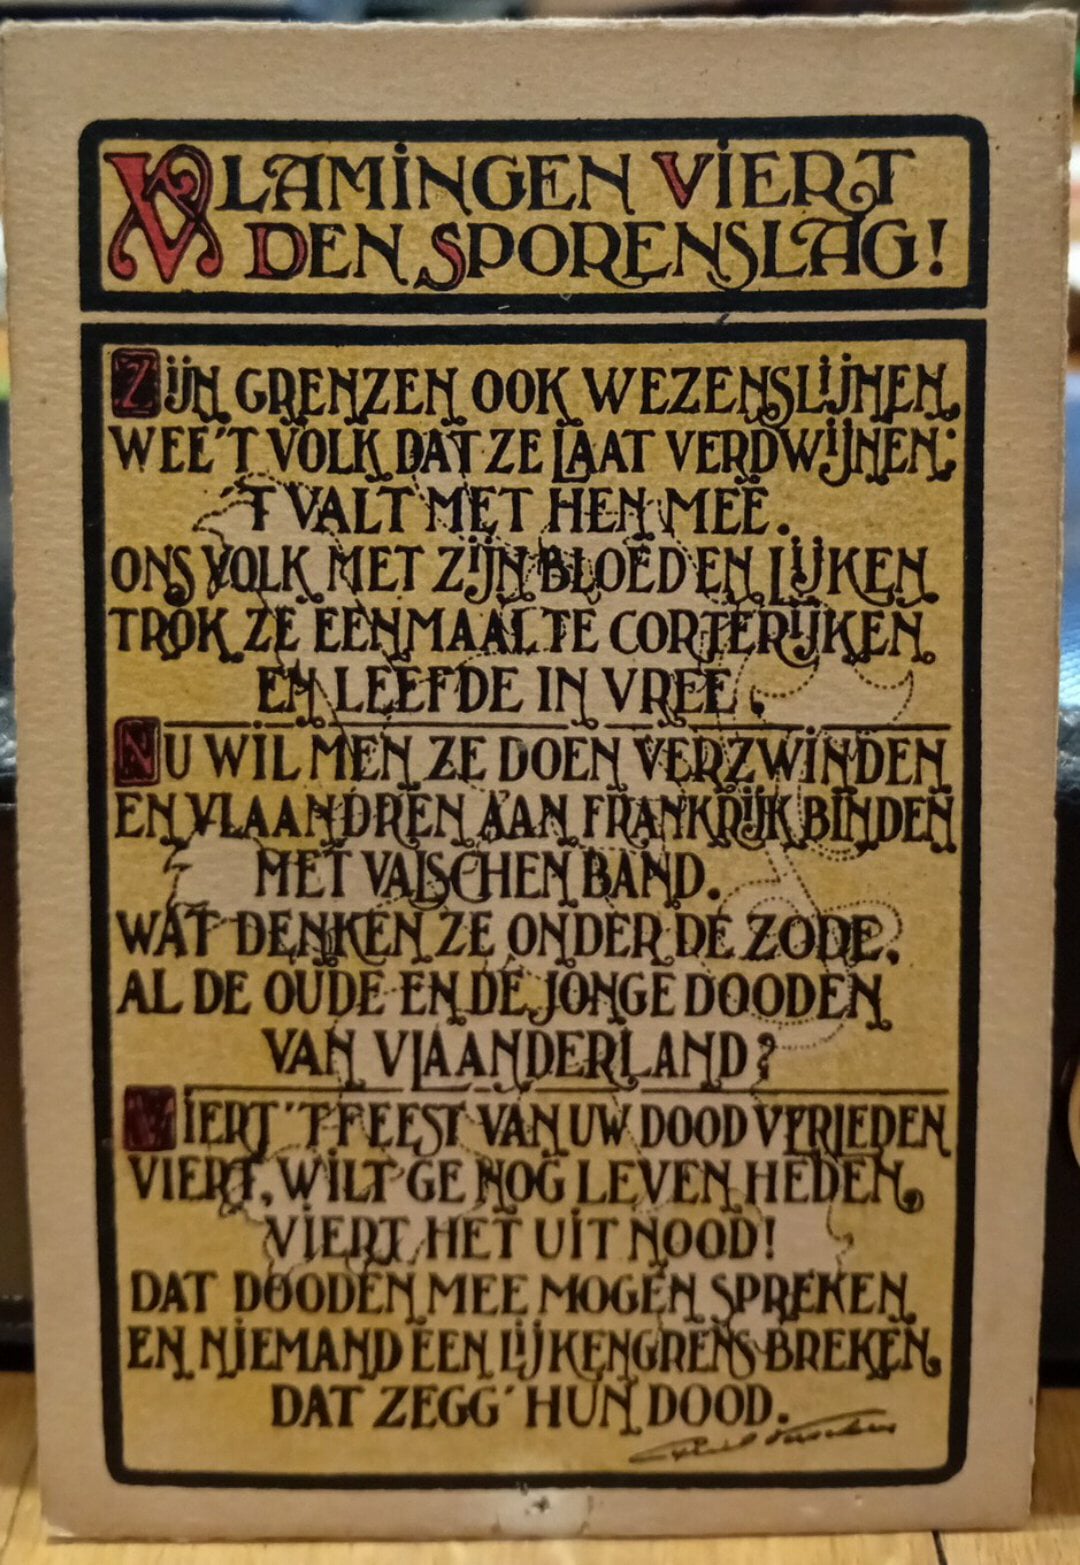 VLAMINGEN VIERT
DEN SPORENSLAG!
ZIJN GRENZEN OOK WEZENSLIJNEN,
WEE 'T VOLK DAT ZE LAAT VERDWIJNEN:
'T VALT MET HEN MEE.
ONS VOLK MET ZIJN BLOED EN LIJKEN
TROK ZE EENMAAL TE CORTERIJKEN
EN LEEFDE IN VREE.
NU WIL MEN ZE DOEN VERZWINDEN
EN VLAANDREN AAN FRANKRIJK BINDEN
MET VALSCHEN BAND.
WAT DENKEN ZE ONDER DE ZODE,
AL DE OUDE EN DE JONGE DOODEN
VAN VLAANDERLAND?
VIERT 'T FEEST VAN UW DOOD VERLEDEN
VIERT, WILT GE NOG LEVEN HEDEN,
VIERT HET UIT NOOD!
DAT DOODEN MEE MOGEN SPREKEN
EN NIEMAND EEN LIJKENGRENS BREKEN,
DAT ZEGG' HUN DOOD.